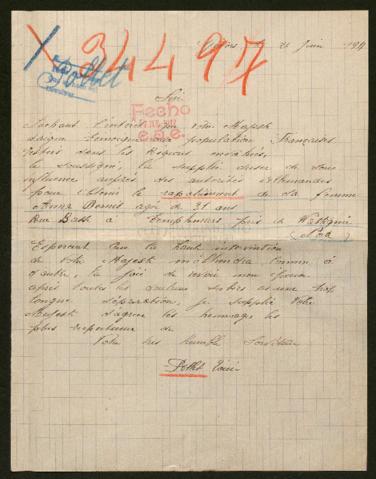 34497
Pollet
21 Juin 191
Sire
Fecho
E.A.E.
Sachant l'intérêt que votre Majesté
daigne témoigner aux population Françaises
restés dans les Régions envahies,
le soussigné, la supplie d'user de son
influence auprès des autorités Allemandes
pour obtenir le rapatriement de sa femme
Anna âgée de 31 ans
Rue Basse à Templeuve près de Wattignies
(Nord)
Espérant que la haute intervention
de votre Majesté comme à
d'autre, la joie de revoir mon épouse
après toutes les douleurs d'une trop
longue séparation, je supplie Votre
Majesté d'agréer les hommages les
plus respectueux de
Votre très humble Serviteur
Pollet